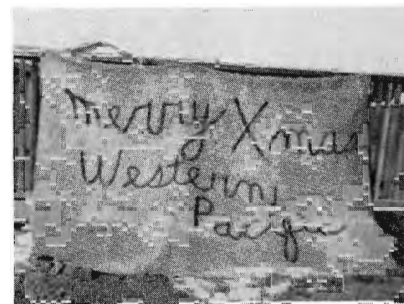 Merry Xmas
Western
Pacific